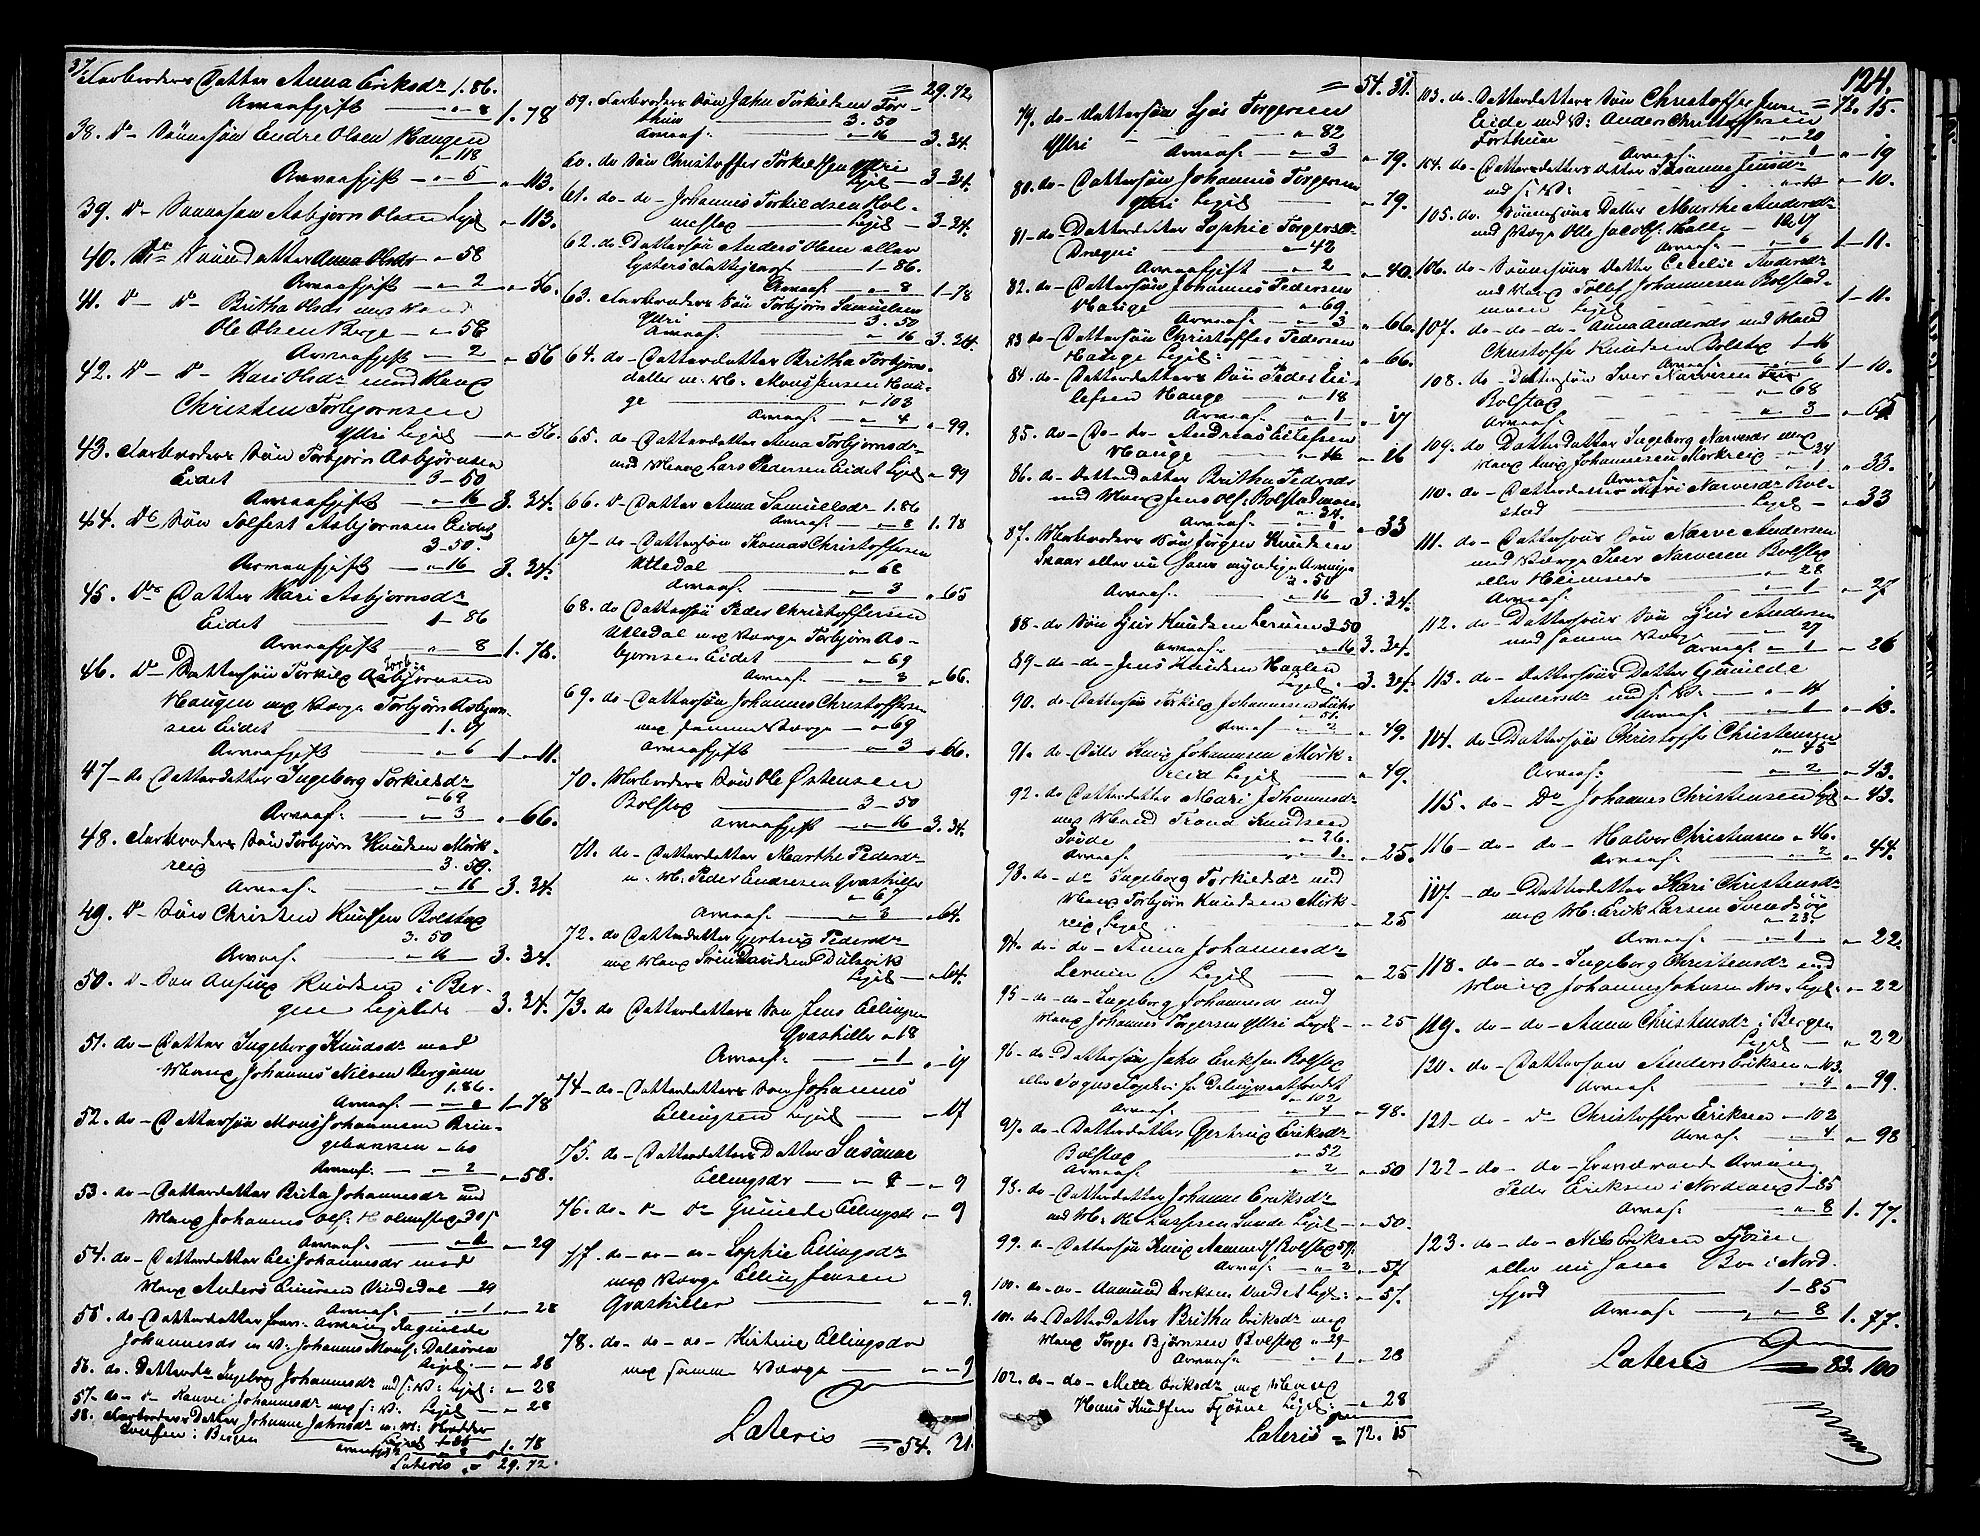 37. Farbroders Datter Anna Eriksdr 1.86.
Arveafgift — " 8 1.78
38. D– Sønnesøn Endre Olsen Haugen
" 118
Arveafgift — " 5 " 113.
39. D– Sønnesøn Asbjørn Olsen Ligel. " 113.
40. Do Sønnedatter Anna Olsdr " 58
Arveafgift — " 2 " 56.
41. D– D– Britha Olsdr med Mand
Ole Olsen Berge — " 58
Arveafgift — " 2 " 56
42. D– D– Kari Olsdr med Mand
Christen Torbjørnsen
Ytri Ligel — " 56.
43. Farbroders Søn Torbjørn Asbjørnsen
Eidet — 3–50
Arveafgift — " 16 3.34.
44. Do Søn Tolfest Asbjørnsen Eidet
3–50.
Arveafgift — " 16 3.34.
45. Do Datter Kari Asbjørnsdr
Eidet — 1–86
Arveafgift — " 8 1.78.
46. D– Dattersøn Torkild Asbjørnsen
Haugen med Værge Torbjørn Asbjørn-
sen Eidet — 1.17
Arveafgift — " 6 1–11.
47– do Datterdatter Ingeborg Torkildsdr
– 69
Arveaf. — " 3 " 66.
48. Farbroders Søn Torbjørn Knudsen Mørk-
reid — 3.50.
Arveaf. — " 16 3.34.
49. D– Søn Christen Knudsen Bolstad
3.50
Arveaf. — " 16 3.34.
50. D– Søn Knudsen i Ber-
gen Ligeledes — 3.34.
51. do– Datter Ingeborg Knudsdr med
Mand Johannes Nilsen Bergum
1.86.
Arveaf. — " 8 1–78
52. do– Dattersøn Mons Johannesen Brin-
gebakken " 60
Arveaf. — " 2 " 58.
53. do– Datterdatter Brita Johannesdr med
Mand Johannes Ols. Holmstad 30
Arveaf. — " 1 " 29
54. do– Datterdatter Eli Johannesdr med
Mand Anders Einersen Vindedal — 29
Arveaf. — " 1 " 28
55. do Datterdatter frav. Arving Ragnilde
Johannesdr m M. Johannes Mons. Dalsøren
Ligel. — " 28
56. do. Datterdr Ingeborg Johannesdr m s. V. Ligel. " 28
57– do– D– Johannesdr med s. V. Ligel — " 28
58. Farbroders Datter Johanne Jahnsdr m. M.
Iversen i Bergen 1–86
Arveafgift " 8 1.78
Lateris = 29.72.
= 29.72
59. Farbroders Søn Jahn Torkildsen For-
thun — 3.50
Arveaf. — " 16 3.34.
60. do Søn Christoffer Torkildsen Ytri
Ligel — 3–34.
61. do– do– Johannes Torkildsen Hol-
mestad Ligel — 3–34.
62. do Dattersøn Anders Hem eller
Lysters — 1–86.
Arveaf. — " 8 1–78
63. Farbroders Søn Torbjørn Samuelsen
Ytri — 3.50
Arveaf. — " 16 3.34.
64. do– Datterdatter Britha Torbjørns-
datter m. M. Mons Jensen Hau-
ge — " 103
Arveaf. — " 4 " 99.
65. do– Datterdatter Anna Torbjørnsdr
med Mand Lars Pedersen Eidet Ligel " 99
66. D– Datter Anna Samuelsdr 1.86
Arveaf. — " 8 1.78
67– do– Dattersøn Thomas Christoffersen
Utledal — " 68
Arveaf. — " 3 " 65
68. do Dattersøn Peder Christoffersen
Utledal med Værge Torbjørn As-
bjørnsen Eidet — " 69
Arveaf. — " 3 " 66.
69. do– Dattersøn Johannes Christoffersen
med samme Værge — " 69
Arveafgift — " 3 " 66.
70. Morbroders Søn Ole Østensen
Bolstad — 3–50
Arveafgift — " 16 3.34.
71. do– Datterdatter Marthe Pedersdr
m. M. Peder Endresen Qvashiller
" 67
Arveaf. — " 3 " 64.
72. do Datterdatter Gjertrud Pedersdr
med Mand Sven Davidsen Dulsvik
Ligel — " 64.
73. do Datterdatters Søn Jens Ellingsen
Qvashiller " 18
Arveaf. — " 1 " 17
74– do– Datterdatters Søn Johannes
Ellingsen Ligel — " 17
75. do– Datterdatters Datter Susanne
Ellingsdr — " 9 — " 9
76. do– D– D– Gunilde Ellingsdr " 9
77. do– do– do– Sophie Ellingsdr
med Værge Elling Jensen
Qvashiller — " 9.
78. do– do– do– Kirtine Ellingsdr
med samme Værge — " 9
Lateris = 54. 31.
= 54.31.
79. do– Dattersøn Sjur Torgersen
Ytri — " 82
Arveaf. — " 3 " 79.
80. do– Dattersøn Johannes Torgersen
Ytri Ligel — " 79.
81– do– Datterdatter Sophie Torgersdr
Drægni — " 42
Arveafgift — " 2 " 40.
82. do– Dattersøn Johannes Pedersen
Hauge — " 69.
Arveaf. — " 3 " 66.
83 do– Dattersøn Christoffer Pedersen
Hauge Ligel: — " 66.
84. do– Datterdatters Søn Peder Ei-
lefsen Hauge — " 18
Arveaf. — " 1 " 17
85. do– Do– do– Andreas Eilefsen
Hauge — " 16 " 16
86. do– Datterdatter Britha Pedersdr
med Mand Jens Ols. Bolstadmoen
" 34.
Arveaf. — " 1 " 33
87. Morbroders Søn Jørgen Knudsen
Skaar eller nu hans myndige Arvinge
3.50
Arveaf. — " 16 3.34.
88– do Søn Sjur Knudsen Lerum 3.50
Arveaf. — " 16 3.34.
89– do– do– Jens Knudsen Haalen
Ligel. — 3.34.
90. do– Dattersøn Torkild Johannesen
" 51.
Arveaf — " 2 " 49.
91. do– Knud Johannesen Mørk-
reid Ligel — " 49.
92. do Datterdatter Mari Johannesdr
med Mand Trond Knudsen
— " 26.
Arveaf. — " 1. " 25.
93. do– do Ingeborg Torkildsdr med
Mand Torbjørn Knudsen Mørk-
reid, Ligel. " 25
94. do– do– Anna Johannesdr
Lerum, Ligel — " 25
95– do– do– Ingeborg Johannesdr med
Mand Johannes Torgersen Ytri Ligel — " 25
96– do– Dattersøn Jahn Eriksen Bolstad
" 102
Arveaf. — " 4 " 98.
97. do– Datterdatter Gjertrud Eriksdr
Bolstad " 52
Arveaf. " 2 " 50
98. do– Datterdatter Johanne Eriksdr
med M. Ole Larsen Sunde Ligel — " 50.
99. do– Dattersøn Knud Aamunds. Bolstad 59.
Arveaf. — " 2 " 57
100. do– do– Aamund Eriksen Ligel: — " 57.
101. do– Datterdatter Britha Eriksdr med
Mand Torger Bjørnsen Bolstad " 29
Arveaf. — " 1 " 28
102. do– do– Mette Eriksdr med Mand
Hans Knudsen Fjøsne Ligel: — " 28
Lateris = 72. 15
124.
103. do– Datterdatters Søn Christoffer Jensen = 72.15.
Eide med V: Anders Christoffersen
Forthun — " 20
Arveaf. " 1 " 19
104. do– Datterdatters Datter Susanne Jensdr
med s. V: " 10.
105. do. Sønnesøns Datter Marthe Andersdr
med Værge Ole Jacobs. — 1.17
Arveaf. — " 6 1–11.
106. do– Sønnesøns Datter Cecilie Andersdr
med Mand Tollef Johannesen Bolstad-
moen Ligel 1–11.
107. do– do– do– Anna Andersdr med Mand
Christoffer Knudsen Bolstad 1–16
Arveaf. — " 6 1–10.
108. do– Dattersøn Iver Narvesen
Bolstad " 68
Arveaf. " 3 " 65
109. do Datterdatter Ingeborg Narvesdr med
Mand Knud Johannesen Mørkreid — " 34
Arveaf. — " 1 " 33.
110. do– Datterdatter Kari Narvesdr Bol-
stad — Ligel — " 33
111. do– Dattersøns Søn Narve Andersen
med Værge Iver Narvesen Bolstad
eller Heimsnes — " 28
Arveaf. — " 1 " 27
112. do– Dattersøns Søn Sjur Andersen
med samme Værge — " 27
Arveaf — " 1 " 26
113. do– Dattersøns Datter Gunilde
Andersdr med s. V. — " 14
Arveaf. — " 1 " 13.
114. do– Dattersøn Christoffer Christensen
" 45
Arveaf. — " 2 " 43.
115. do– Do Johannes Christensen Ligel " 43.
116– do– do– Halvor Christensen " 46.
Arveaf. — " 2 " 44.
117. – do– Datterdatter Kari Christensdr
med M. Erik Larsen Svendsøe
" 23.
Arveaf. — " 1 " 22.
118. do– do– Ingeborg Christensdr med
Mand Johannes Johnsen Næs Ligel: " 22
119. do– do– Anna Christensdr i Bergen
Ligel — " 22
120. do– Dattersøn Anders Eriksen " 103.
Arveaf " 4 " 99.
121– do– D– Christoffer Eriksen – 102
Arveaf. — 4 " 98
122– do– do– fraværende Arving
Peder Eriksen i Nordland 1–85
Arveaf. — " 8 1.77.
123. do– do– Nils Eriksen Fjøsne
eller nu hans Bo i Nord-
fjord — 1–85
Arveaf. — " 8 1.77.
Lateris = 83. 100